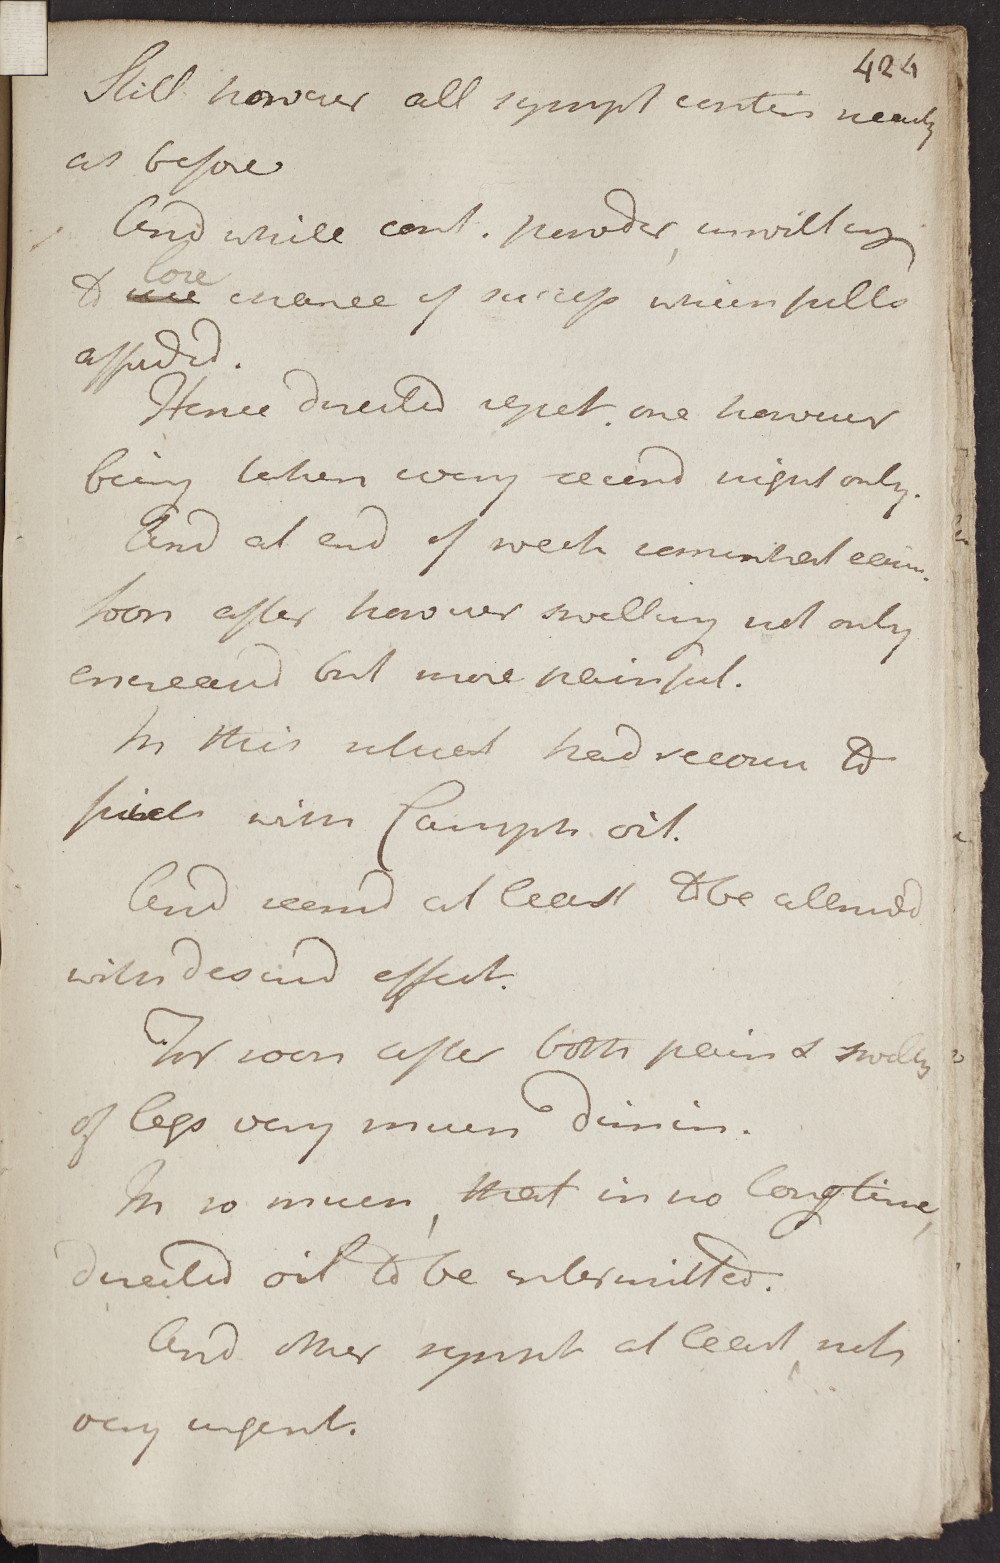 424
Still however all sympt contin nearly
as before
And while cont. powder, unwilling
to lose chance of success which pills
afforded.
Hence directed repet. one however
being taken every second night only.
And at end of week somewhat
soon after however swelling not only
encreased but more painful.
In this had recour to
with Camph oil.
And seemd at least to be allowed
with desired effect.
For soon after both pain & swellg
of legs very much dimin.
In so much, that in no long time,
directed oil to be intermitted.
And other sympt at least, not
very urgent.